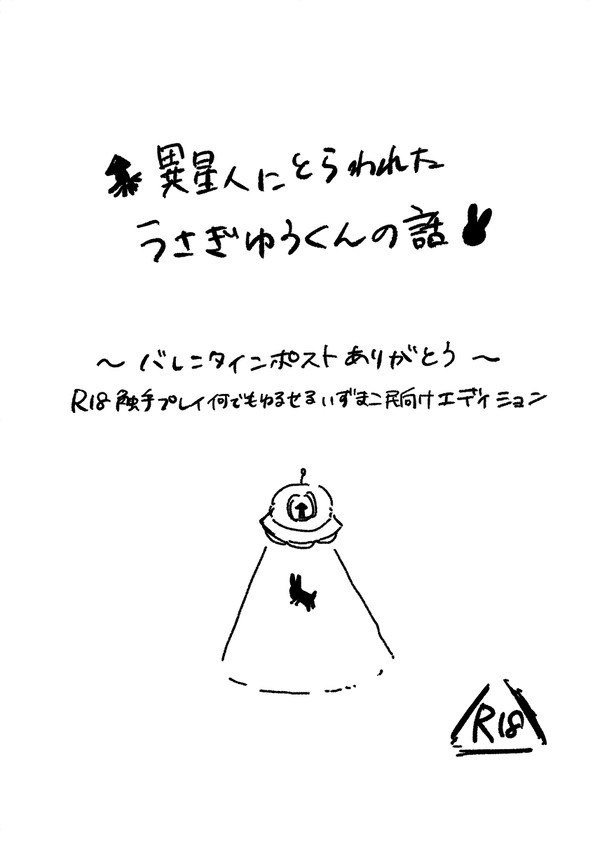 異星人にとらわれた
うさぎゆうくんの話
～バレンタインポストありがとう～
R18触手プレイ何でもゆるせるいずまこ民向けエディション
R18